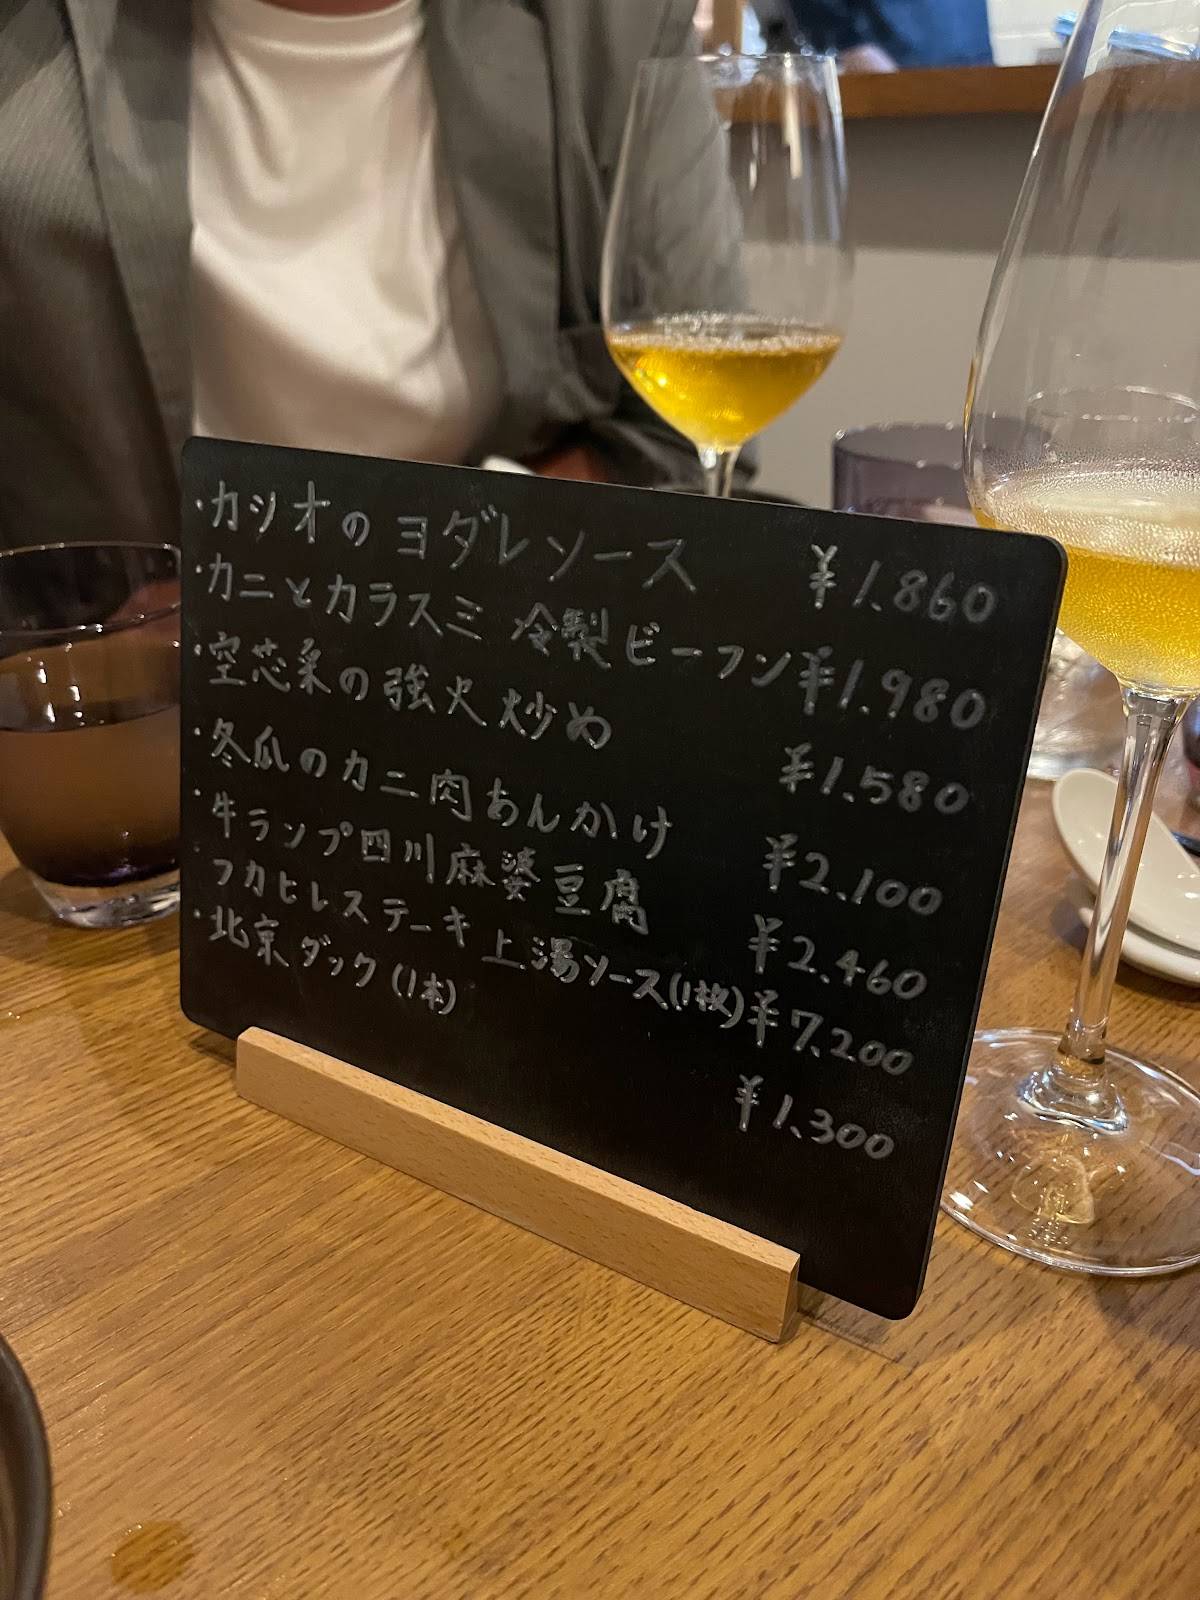 ・カツオのヨダレソース ¥1.860
・カニとカラスミ 冷製ビーフン ¥1.980
・空芯菜の強火炒め ¥1.580
・冬瓜のカニ肉あんかけ ¥2.100
・牛ランプ四川麻婆豆腐 ¥2.460
フカヒレステーキ 上湯ソース(1枚) ¥7.200
・北京ダック(1本) ¥1.300